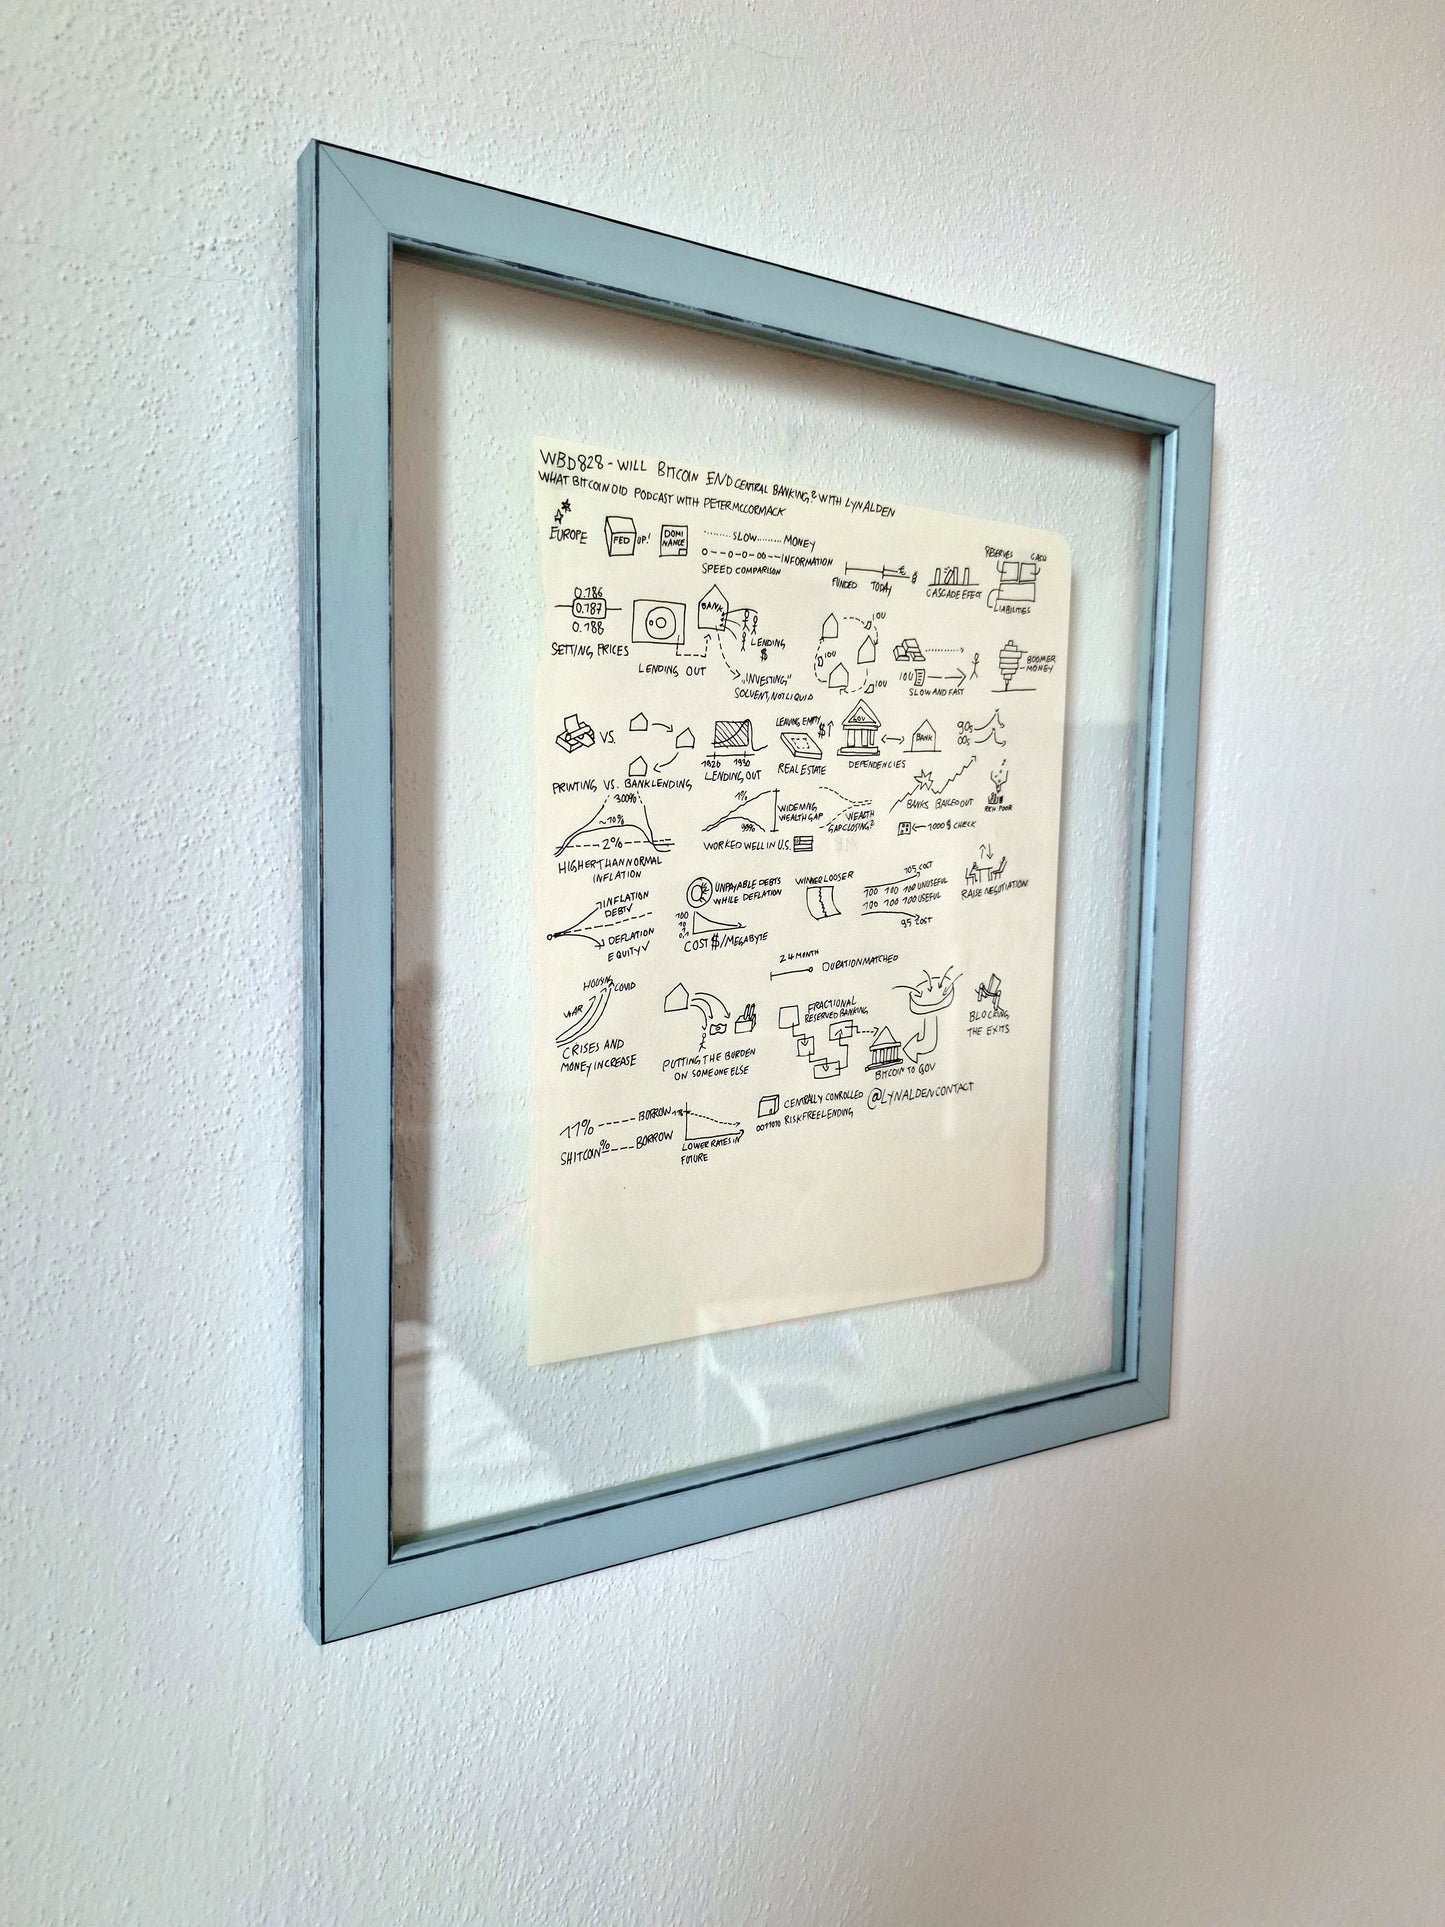 WBD828 - WILL BITCOIN END CENTRAL BANKING? WITH LYN ALDEN
WHAT BITCOIN DID PODCAST WITH PETER MCCORMACK
EUROPE
FED UP!
DOMI
NANCE
SLOW MONEY
INFORMATION
SPEED COMPARISON
FUNDED TODAY
€
$
CASCADE EFFECT
RESERVES CASH
LIABILITIES
0.786
0.787
0.788
SETTING PRICES
LENDING OUT
BANK
LENDING
$
"INVESTING"
SOLVENT, NOT LIQUID
IOU
IOU
IOU
IOU
SLOW AND FAST
BOOMER
MONEY
VS.
PRINTING VS. BANKLENDING
1920 1930
LENDING OUT
LEAVING EMPTY
$↑
REAL ESTATE
GOV
BANK
DEPENDENCIES
90s
00s
300%
~70%
2%
HIGHER THAN NORMAL
INFLATION
1%
99%
WIDENING
WEALTH GAP
WORKED WELL IN U.S.
WEALTH
GAP CLOSING?
BANKS BAILED OUT
1000$ CHECK
RICH POOR
INFLATION
DEBT√
DEFLATION
EQUITY√
UNPAYABLE DEBTS
WHILE DEFLATION
100
10
1
0.1
COST $/MEGABYTE
WINNER LOOSER
105 COST
100 100 100 UNUSEFUL
100 100 100 USEFUL
95 COST
RAISE NEGOTIATION
24 MONTH
DURATION MATCHED
WAR
HOUSING
COVID
CRISES AND
MONEY INCREASE
PUTTING THE BURDEN
ON SOMEONE ELSE
FRACTIONAL
RESERVED BANKING
BITCOIN TO GOV
BLOCKING
THE EXITS
11% BORROW
SHITCOIN% BORROW
LOWER RATES IN
FUTURE
CENTRALLY CONTROLLED
RISKFREE LENDING
@LYNALDENCONTACT